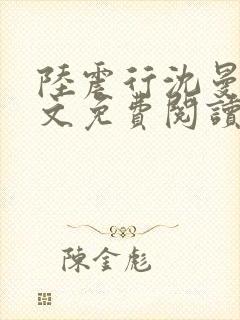 陸震行沈曼
文免費閱讀
陳金彪